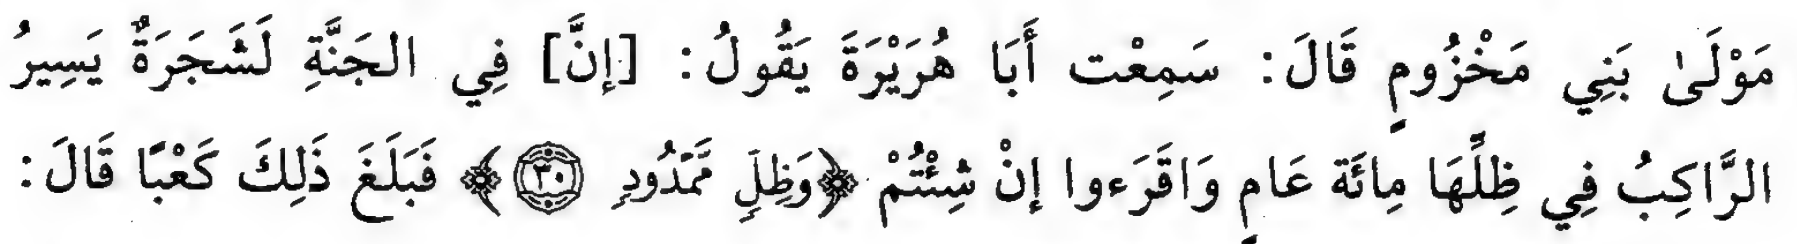 مَوْلَىٰ بَنِي مَخْزُومٍ قَالَ: سَمِعْت أَبَا هُرَيْرَةَ يَقُولُ: [إنَّ] فِي الجَنَّةِ لَشَجَرَةٌ يَسِيرُ
الرَّاكِبُ فِي ظِلِّهَا مِائَة عَامٍ وَاقَرَءوا إنْ شِئْتُمْ ﴿وَظِلٍّ مَّمْدُودٍ ٣٠﴾ فَبَلَغَ ذَلِكَ كَعْبًا قَالَ: